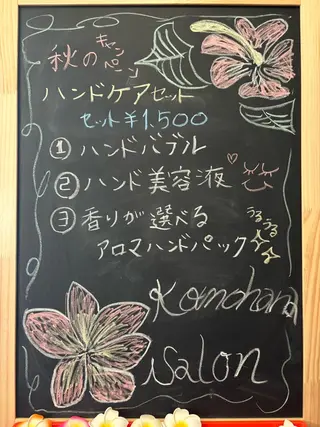 秋のキャンペーン
ハンドケアセット
セット¥1,500
① ハンドバブル
② ハンド美容液♡
③ 香りが選べる
アロマハンドパック
うるうる
Komohana
Salon